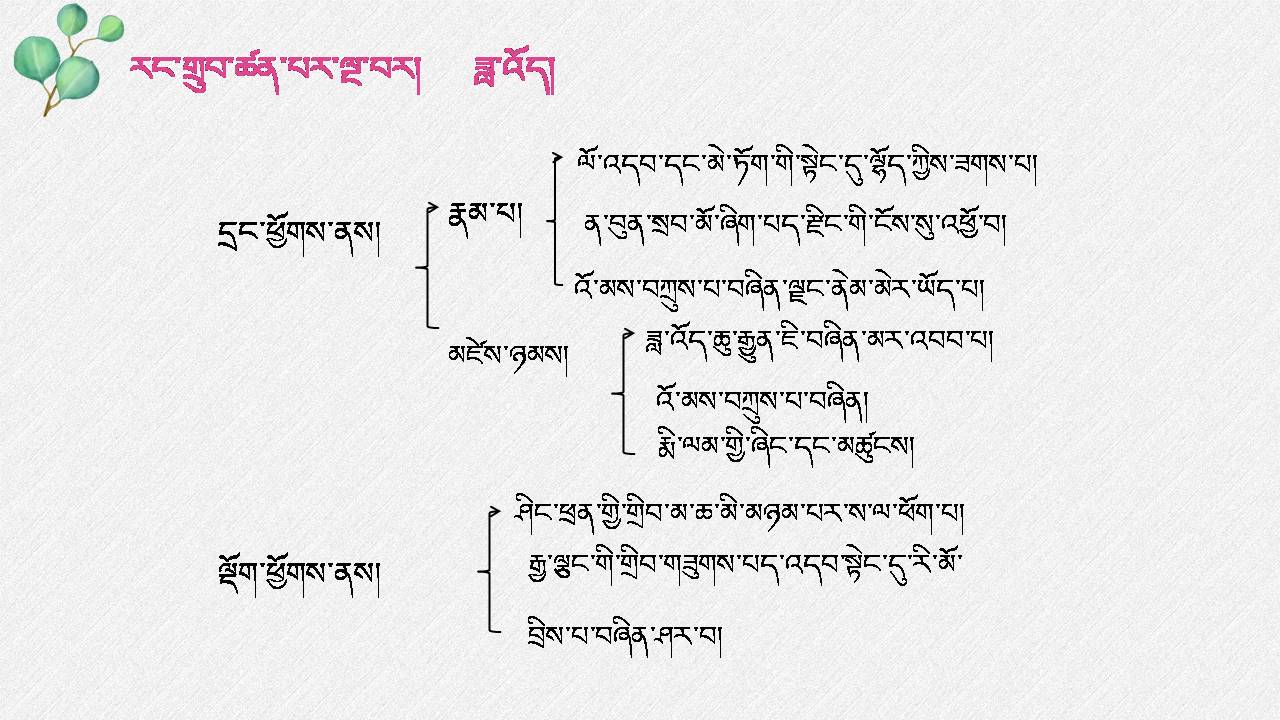 རང་གྲུབ་ཚན་པར་ལྔ་བར། ཟླ་འོད།
ལོ་འདབ་དང་མེ་ཏོག་གི་སྟེང་དུ་ལྷོད་ཀྱིས་ཟགས་པ།
དྲང་ཕྱོགས་ནས།
རྣམ་པ།
ན་བུན་སྲབ་མོ་ཞིག་པད་རྫིང་གི་ངོས་སུ་འཕྱོ་བ།
འོ་མས་བཀྲུས་པ་བཞིན་ལྗང་ནེམ་མེར་ཡོད་པ།
མཛེས་ཉམས།
ཟླ་འོད་ཆུ་རྒྱུན་ཇི་བཞིན་མར་འབབ་པ།
འོ་མས་བཀྲུས་པ་བཞིན།
རྨི་ལམ་གྱི་ཞིང་དང་མཚུངས།
ལྡོག་ཕྱོགས་ནས།
ཤིང་ཕྲན་གྱི་གྲིབ་མ་ཆ་མི་མཉམ་པར་ས་ལ་ཕོག་པ།
རྒྱ་ལྕང་གི་གྲིབ་གཟུགས་པད་འདབ་སྟེང་དུ་རི་མོ་
བྲིས་པ་བཞིན་ཤར་བ།